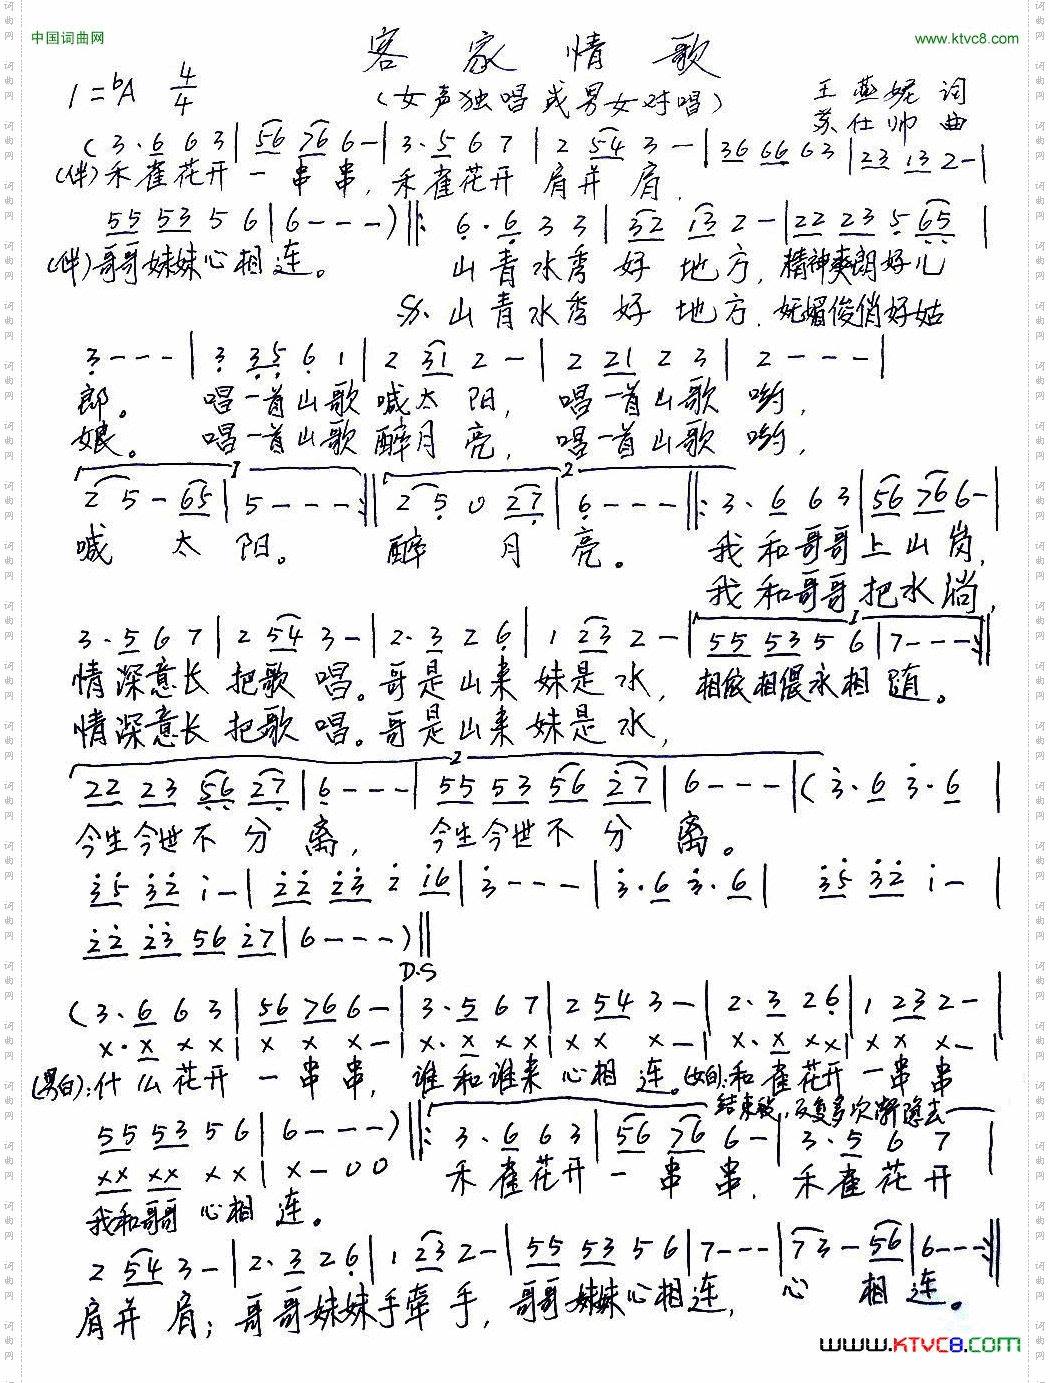 中国词曲网
www.ktvc8.com
客家情歌
1=♭A 4/4
(女声独唱或男女对唱)
王燕妮 词
苏仕帅 曲
(3·6 6 3|56 766-|3·5 6 7|2 54 3-|36 66 63|23 i3 2-|
(伴)禾雀花开一串串,禾雀花开肩并肩,
55 53 5 6|6---)‖: 6·6 3 3|32 i3 2-|22 23 5 65|
(伴)哥哥妹妹心相连。 山青水秀好地方,精神爽朗好儿
S、山青水秀好地方,妩媚俊俏好姑
3---|3 35 6 1|2 31 2-|2 21 2 3|2---|
郎。 唱一首山歌喊太阳, 唱一首山歌哟,
娘。 唱一首山歌醉月亮, 唱一首山歌哟,
1 2
2 5-65|5---:‖2 5 0 27|6---‖: 3·6 6 3|56 766-|
喊太阳。 醉月亮。 我和哥哥上山岗,
我和哥哥把水淌,
1
3·5 6 7|2 54 3-|2·3 2 6|1 23 2-|55 53 5 6|7---:‖
情深意长把歌唱。哥是山来妹是水,相依相偎永相随。
情深意长把歌唱。哥是山来妹是水,
2
22 23 56 27|6---|55 53 56 i7|6---|(3·6 3·6|
今生今世不分离, 今生今世不分离。
35 32 i-|22 23 2 i6|3---|3·6 3·6| 35 32 i-|
22 23 56 i7|6---)‖
D.S
(3·6 6 3|56 766-|3·5 6 7|2 54 3-|2·3 2 6|1 23 2-|
x·x x x|x x x-|x·x x x|x x x-|x·x xx|x x x-|
(男白):什么花开一串串,谁和谁来心相连。(女白):和雀花开一串串
结束段,反复多次渐隐去
55 53 5 6|6---)‖: 3·6 6 3|56 76 6-|3·5 6 7|
xx xx x x|x-00 禾雀花开一串串,禾雀花开
我和哥哥心相连。
2 54 3-|2·3 2 6|1 23 2-|55 53 5 6|7---|73-56|6---:‖
肩并肩;哥哥妹妹手牵手,哥哥妹妹心相连,心相连。
www.KTVC8.com